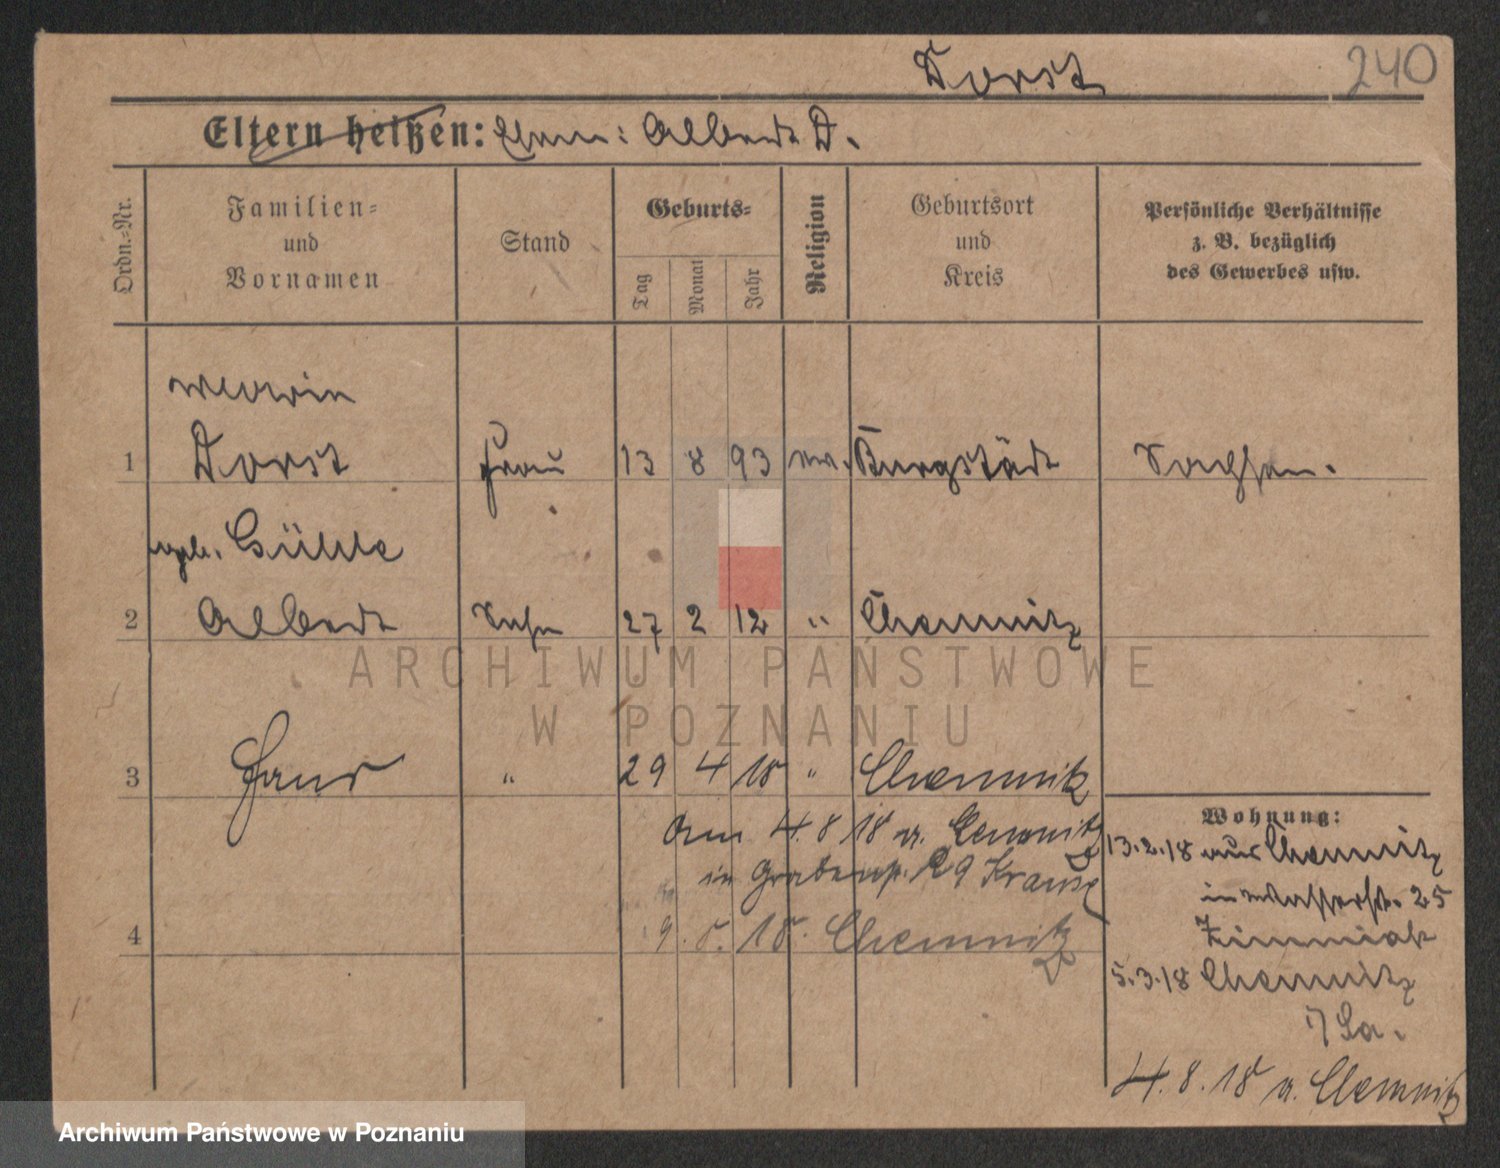 Dorst 240
Eltern heißen: Albert D.
Ordn.-Nr.
Familien- und Vornamen
Stand
Geburts-
Tag
Monat
Jahr
Religion
Geburtsort und Kreis
Persönliche Verhältnisse z. B. bezüglich des Gewerbes usw.
1 Dorst Frau 13 8 93 ev. Burgstädt Sachsen.
geb.
2 Albert Sohn 27 2 12 " Chemnitz
3 Hans " 29 4 18 " Chemnitz
Wohnung:
am 4. 8 18 a. Chemnitz
in 29 Krause
4 9. 8. 18. Chemnitz
13.2.18 aus Chemnitz
in 25
5.3.18 Chemnitz
i/Sa.
4. 8. 18 a. Chemnitz
ARCHIWUM PAŃSTWOWE
W POZNANIU
Archiwum Państwowe w Poznaniu